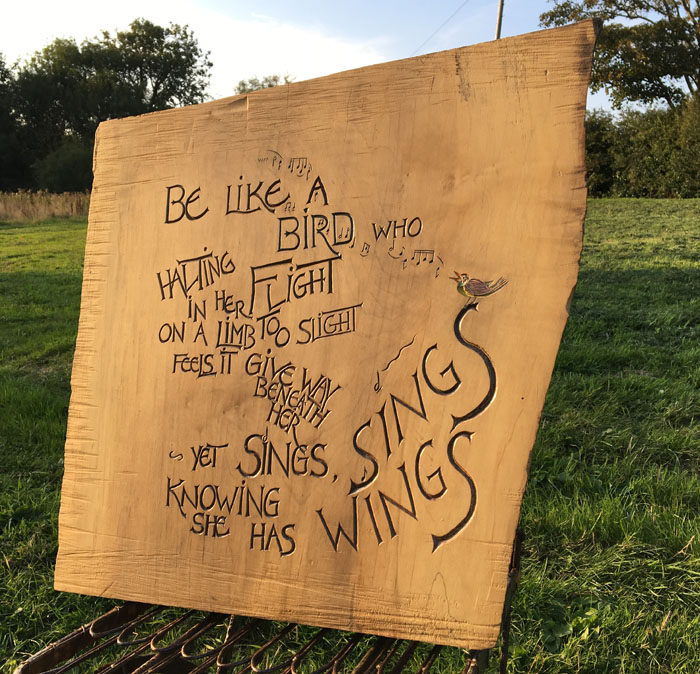 BE LIKE A
BIRD, WHO
HALTING
IN HER FLIGHT
ON A LIMB TOO SLIGHT
FEELS IT GIVE WAY
BENEATH
HER
~ YET SINGS, SINGS
KNOWING
SHE HAS WINGS